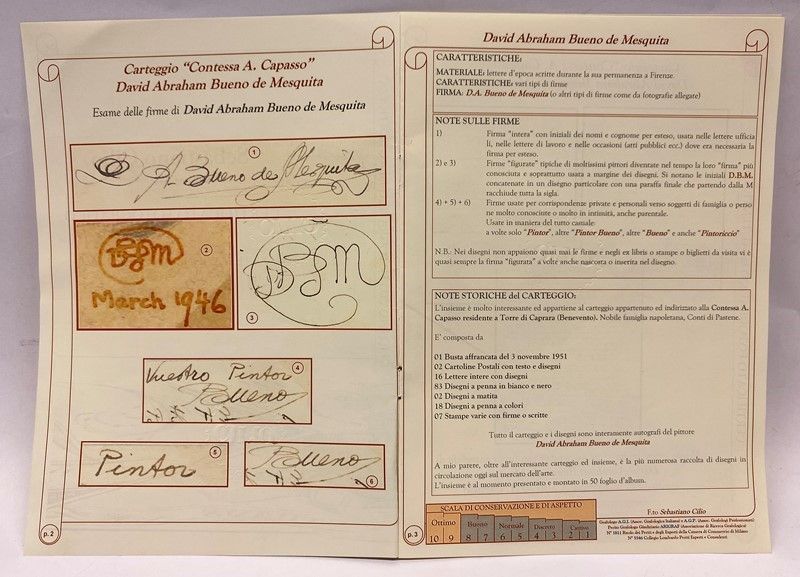 Carteggio "Contessa A. Capasso"
David Abraham Bueno de Mesquita
Esame delle firme di David Abraham Bueno de Mesquita
1
A Bueno de Mesquita
2
DBM
March 1946
3
DBM
4
Vuestro Pintor
Bueno
5
Pintor
Bueno
6
p. 2
David Abraham Bueno de Mesquita
CARATTERISTICHE:
MATERIALE: lettere d'epoca scritte durante la sua permanenza a Firenze.
CARATTERISTICHE: vari tipi di firme
FIRMA: D.A. Bueno de Mesquita (o altri tipi di firme come da fotografie allegate)
NOTE SULLE FIRME
1) Firma "intera" con iniziali dei nomi e cognome per esteso, usata nelle lettere ufficia
li, nelle lettere di lavoro e nelle occasioni (atti pubblici ecc.) dove era necessaria la
firma per esteso.
2) e 3) Firme "figurate" tipiche di moltissimi pittori diventate nel tempo la loro "firma" più
conosciuta e soprattutto usata a margine dei disegni. Si notano le iniziali D.B.M.
concatenate in un disegno particolare con una paraffa finale che partendo dalla M
racchiude tutta la sigla.
4) + 5) + 6) Firme usate per corrispondenze private e personali verso soggetti di famiglia o perso
ne molto conosciute o molto in intimità, anche parentale.
Usate in maniera del tutto casuale:
a volte solo "Pintor", altre "Pintor Bueno", altre "Bueno" e anche "Pintoriccio"
N.B.: Nei disegni non appaiono quasi mai le firme e negli ex libris o stampe o biglietti da visita vi è
quasi sempre la firma "figurata" a volte anche nascosta o inserita nel disegno.
NOTE STORICHE del CARTEGGIO:
L'insieme è molto interessante ed appartiene al carteggio appartenuto ed indirizzato alla Contessa A.
Capasso residente a Torre di Caprara (Benevento). Nobile famiglia napoletana, Conti di Pastene.
E' composta da
01 Busta affrancata del 3 novembre 1951
02 Cartoline Postali con testo e disegni
16 Lettere intere con disegni
83 Disegni a penna in bianco e nero
02 Disegni a matita
18 Disegni a penna a colori
07 Stampe varie con firme o scritte
Tutto il carteggio e i disegni sono interamente autografi del pittore
David Abraham Bueno de Mesquita
A mio parere, oltre all'interessante carteggio ed insieme, è la più numerosa raccolta di disegni in
circolazione oggi sul mercato dell'arte.
L'insieme è al momento presentato e montato in 50 foglio d'album.
SCALA DI CONSERVAZIONE E DI ASPETTO
Ottimo Buono Normale Discreto Cattivo
10 9 8 7 6 5 4 3 2 1
F.to Sebastiano Cilio
Grafologo A.G.I. (Assoc. Grafologica Italiana) e A.G.P. (Assoc. Grafologi Professionisti)
Perito Grafologo Giudiziario ARIGRAF (Associazione di Ricerca Grafologica)
N° 1811 Ruolo dei Periti e degli Esperti della Camera di Commercio di Milano
Collegio Lombardo Periti Esperti e Consulenti
p. 3